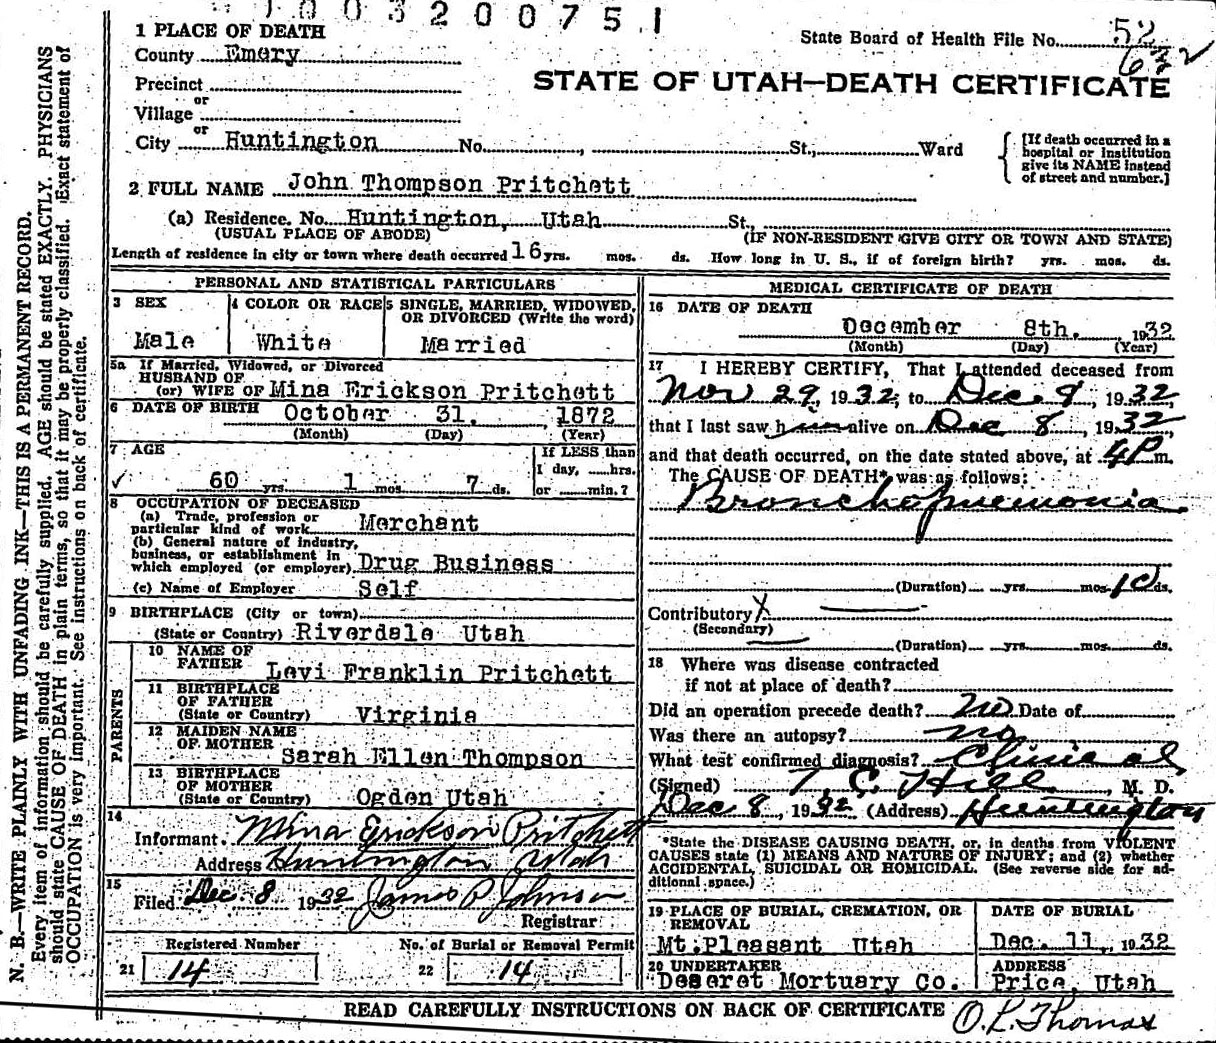 1 0 0 3 2 0 0 7 5 1
State Board of Health File No. 52
632
STATE OF UTAH—DEATH CERTIFICATE
1 PLACE OF DEATH
County Emery
Precinct
or
Village
or
City Huntington No. , St., Ward
{ [If death occurred in a
hospital or institution
give its NAME instead
of street and number.]
2 FULL NAME John Thompson Pritchett
(a) Residence. No. Huntington, Utah St.,
(USUAL PLACE OF ABODE) (IF NON-RESIDENT GIVE CITY OR TOWN AND STATE)
Length of residence in city or town where death occurred 16 yrs. mos. ds. How long in U. S., if of foreign birth? yrs. mos. ds.
PERSONAL AND STATISTICAL PARTICULARS
3 SEX
Male
4 COLOR OR RACE
White
5 SINGLE, MARRIED, WIDOWED,
OR DIVORCED (Write the word)
Married
5a If Married, Widowed, or Divorced
HUSBAND OF
(or) WIFE OF Mina Erickson Pritchett
6 DATE OF BIRTH October 31. , 1872
(Month) (Day) (Year)
7 AGE
60 yrs. 1 mos. 7 ds.
If LESS than
1 day, ......hrs.
or ........min.?
8 OCCUPATION OF DECEASED
(a) Trade, profession or
particular kind of work Merchant
(b) General nature of industry,
business, or establishment in
which employed (or employer) Drug Business
(c) Name of Employer Self
9 BIRTHPLACE (City or town)
(State or Country) Riverdale Utah
PARENTS
10 NAME OF
FATHER Levi Franklin Pritchett
11 BIRTHPLACE
OF FATHER
(State or Country) Virginia
12 MAIDEN NAME
OF MOTHER Sarah Ellen Thompson
13 BIRTHPLACE
OF MOTHER
(State or Country) Ogden Utah
14
Informant Mina Erickson Pritchett
Address Huntington Utah
15
Filed Dec. 8 1932 James P Johnson
Registrar
Registered Number
21 14
No. of Burial or Removal Permit
22 14
MEDICAL CERTIFICATE OF DEATH
16 DATE OF DEATH
December 8th. 1932
(Month) (Day) (Year)
17 I HEREBY CERTIFY, That I attended deceased from
Nov 29, 1932, to Dec. 8, 1932,
that I last saw him alive on Dec 8, 1932,
and that death occurred, on the date stated above, at 4P m.
The CAUSE OF DEATH* was as follows:
Bronchopneumonia
(Duration) yrs. mos. 10 ds.
Contributory X
(Secondary)
(Duration) yrs. mos. ds.
18 Where was disease contracted
if not at place of death?
Did an operation precede death? no Date of
Was there an autopsy? no
What test confirmed diagnosis? Clinical
(Signed) T. C. Hill, M. D.
Dec 8, 1932 (Address) Huntington
*State the DISEASE CAUSING DEATH, or, in deaths from VIOLENT
CAUSES state (1) MEANS AND NATURE OF INJURY; and (2) whether
ACCIDENTAL, SUICIDAL OR HOMICIDAL. (See reverse side for ad-
ditional space.)
19 PLACE OF BURIAL, CREMATION, OR
REMOVAL
Mt. Pleasant Utah
DATE OF BURIAL
Dec. 11, 1932
20 UNDERTAKER
Deseret Mortuary Co.
ADDRESS
Price, Utah
READ CAREFULLY INSTRUCTIONS ON BACK OF CERTIFICATE
O. L. Thomas
N. B.—WRITE PLAINLY WITH UNFADING INK—THIS IS A PERMANENT RECORD.
Every item of information should be carefully supplied. AGE should be stated EXACTLY. PHYSICIANS
should state CAUSE OF DEATH in plain terms, so that it may be properly classified. Exact statement of
OCCUPATION is very important. See instructions on back of certificate.